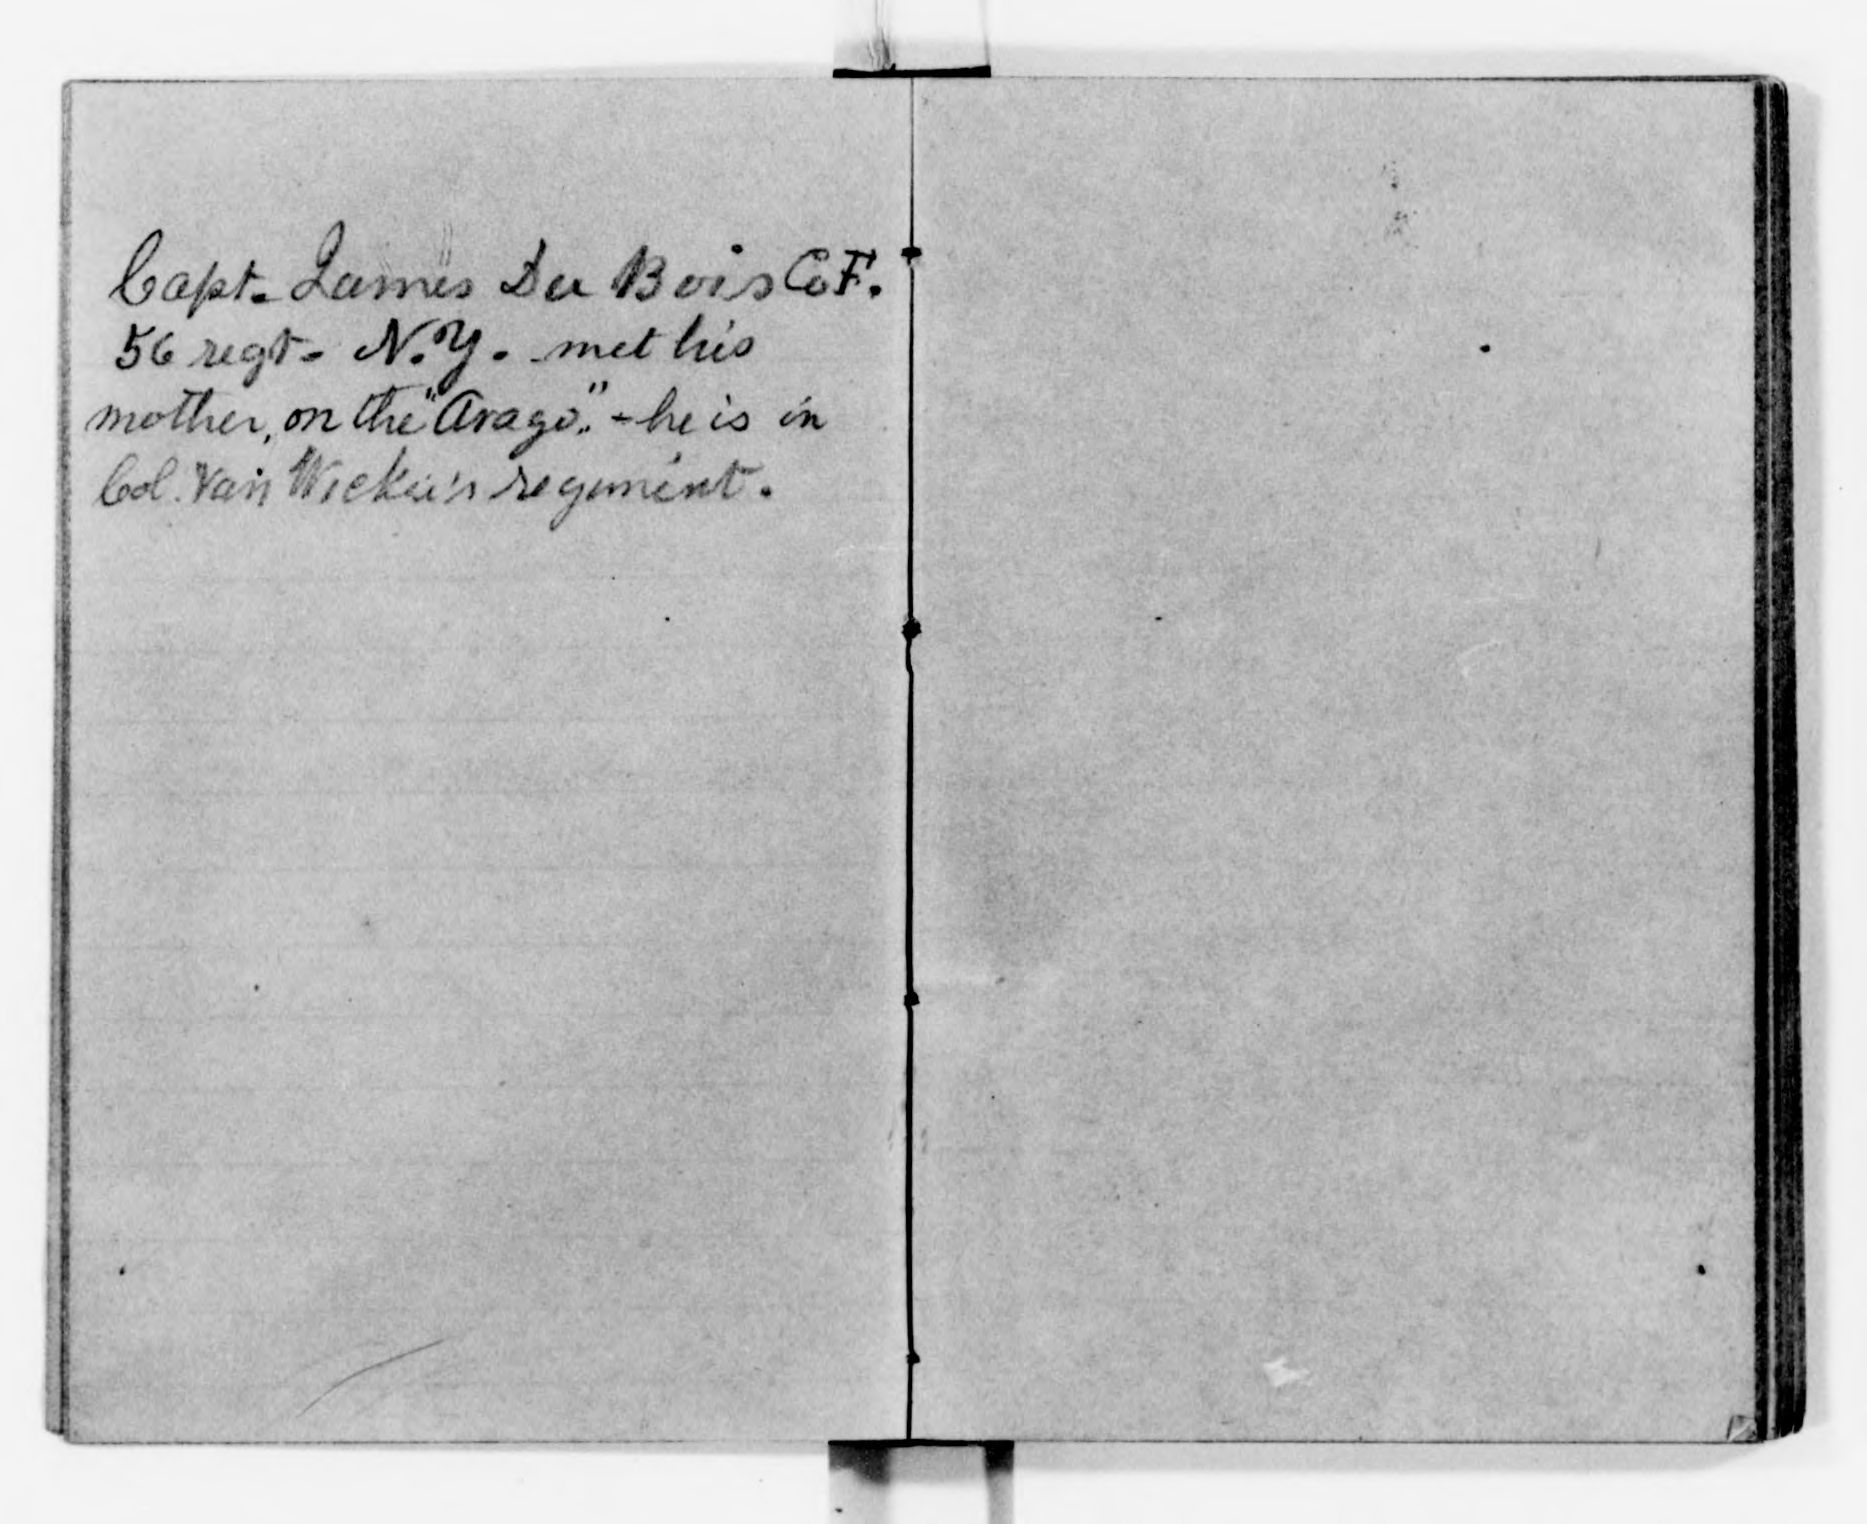 Capt. James Du Bois Co F.
56 regt. N.Y. met his
mother, on the "Arago". - he is in
Col. Van Wicker's regiment.